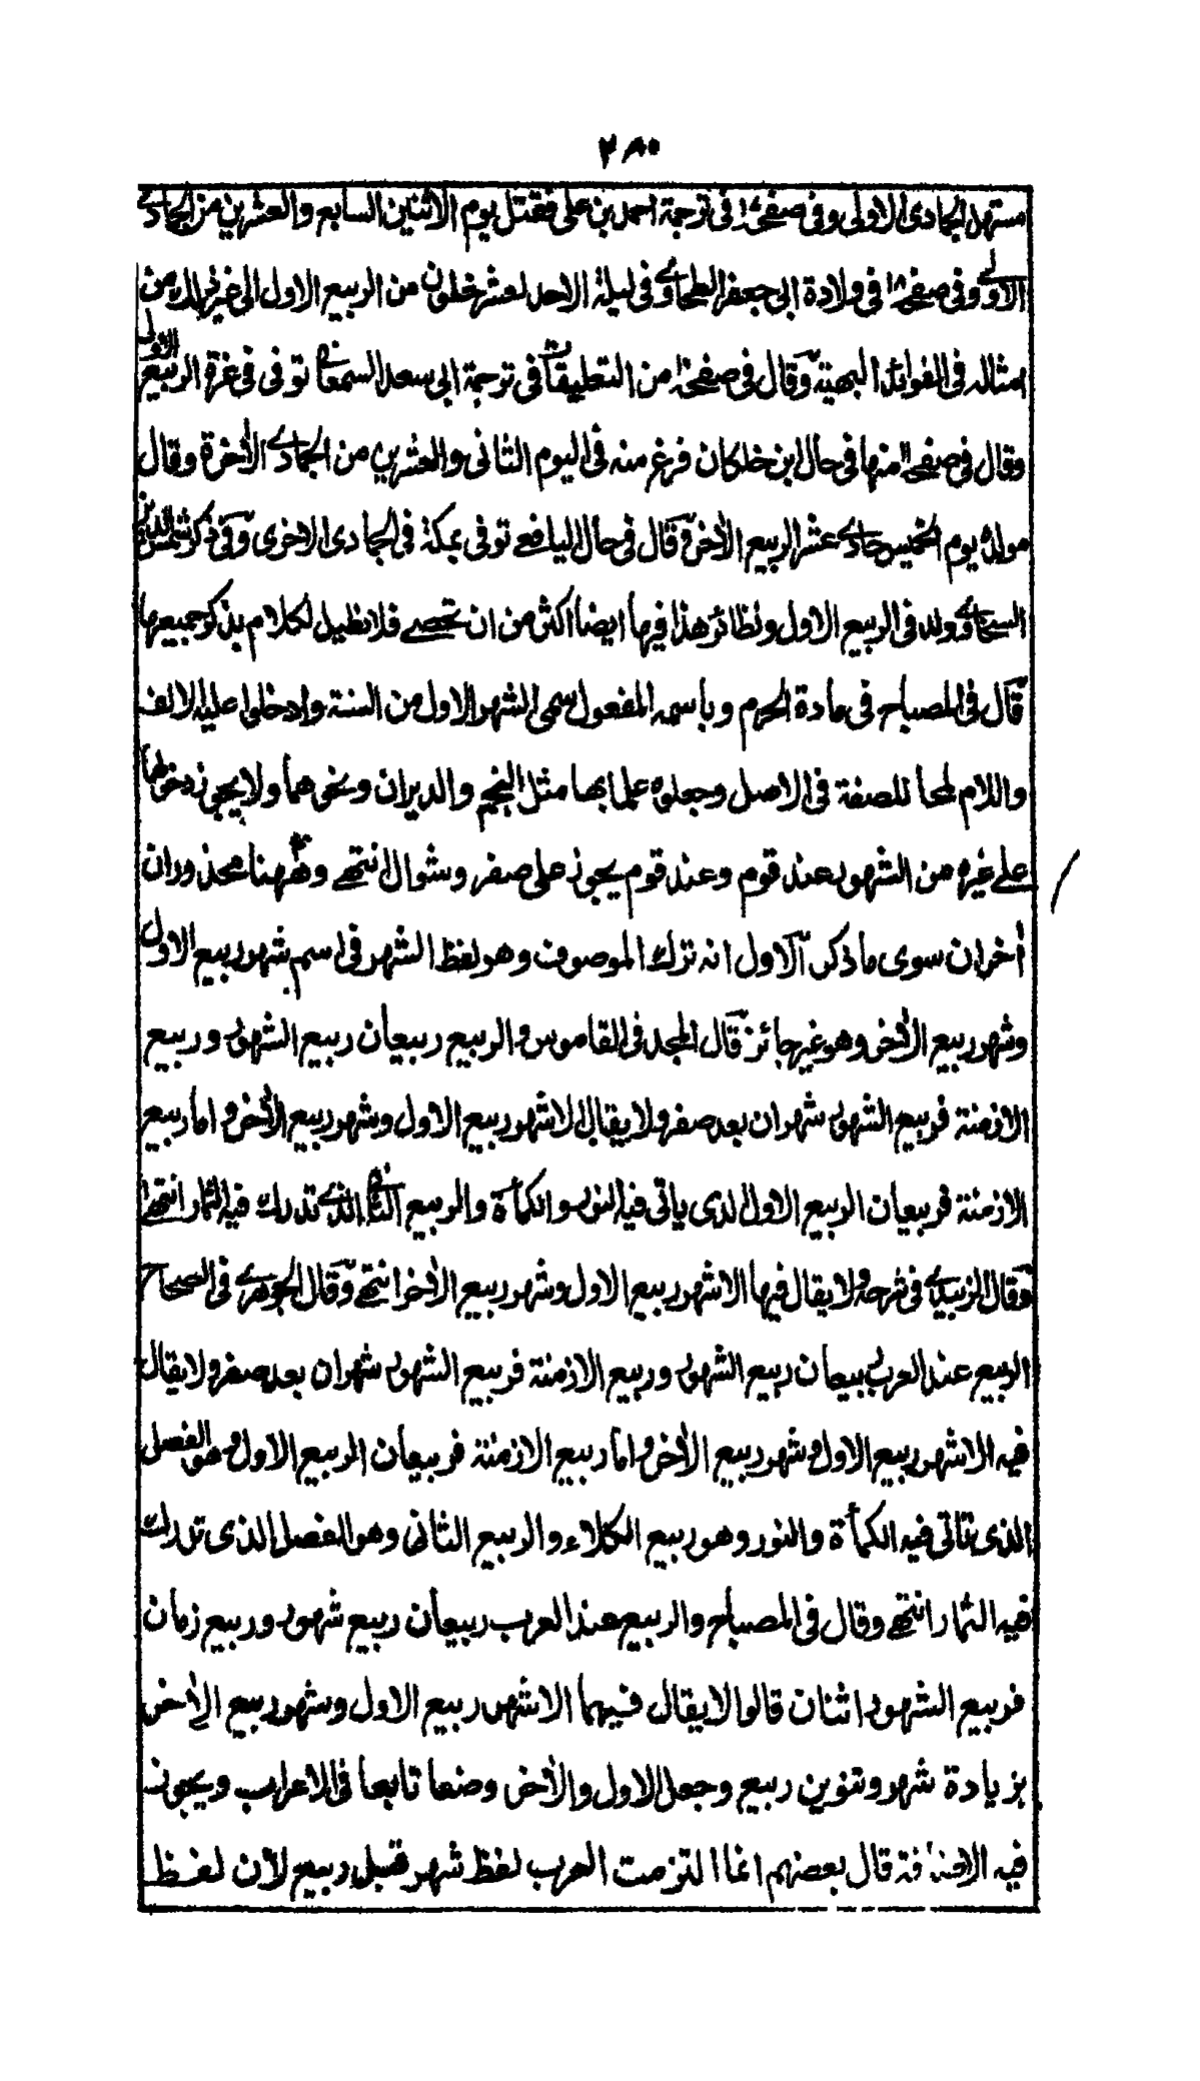 ٢٨٠
مستهل الجمادى الاولى وفى صفحة في ترجمة احمد بن على فقتل يوم الاثنين السابع والعشرين من الجمادے
الاولے وفى صفحة ١٨ فى ولادة ابى جعفر الطحاوے وفى ليلة الاحد لعشر خلون من الربيع الاول الى غير ذلك من
امثاله فى الفوائد البهية وقال فى صفحة من التعليقات فى ترجمة ابى سعد السمعانے توفى فى غرة الربيع الاولى
وقال فى صفحة منها فى حال ابن خلكان فرغ منه فى اليوم الثانى والعشرين من الجمادے الأخرة وقال
مولده يوم الخميس حادے عشر الربيع الأخر وقال فى حال اليافعے توفى بمكة فى الجمادى الاخرى وفى ذكر شمس الدين
السخاوے ولد فى الربيع الاول ونظائر هذا فيها ايضا اكثر من ان تحصے فلا نطيل الكلام بذكر جميعها
قال فى المصباح فى مادة الحرم وباسم المفعول سمى الشهر الاول من السنة وادخلوا عليه الالف
واللام لمحا للصفة فى الاصل وجعلوه علما بها مثل النجم والدبران ونحوهما ولا يجوز دخولهما
علے غيره من الشهور عند قوم وعند قوم يجوز على صفر وشوال انتهے وههنا محذوران
أخران سوى ما ذكر الاول انه ترك الموصوف وهو لفظ الشهر فى اسم شهر ربيع الاول
وشهر ربيع الأخر وهو غير جائز قال المجد فى القاموس والربيع ربيعان ربيع الشهور وربيع
الازمنة فربيع الشهور شهران بعد صفر ولا يقال الا شهر ربيع الاول وشهر ربيع الأخر واما ربيع
الازمنة فربيعان الربيع الاول الذى ياتى فيه النور والكمأة والربيع الثانے الذے تدرك فيه الثمار انتهے
وقال الزبيدے فى شرحه ولا يقال فيها الا شهر ربيع الاول وشهر ربيع الأخر انتهے وقال الجوهرے فى الصحاح
الربيع عند العرب ربيعان ربيع الشهور وربيع الازمنة فربيع الشهور شهران بعد صفر ولا يقال
فيه الا شهر ربيع الاول وشهر ربيع الأخر واما ربيع الازمنة فربيعان الربيع الاول وهو الفصل
الذى تاتى فيه الكمأة والنور وهو ربيع الكلاء والربيع الثانى وهو الفصل الذى تدرك
فيه الثمار انتهے وقال فى المصباح والربيع عند العرب ربيعان ربيع شهور وربيع زمان
فربيع الشهور اثنان قالوا لا يقال فيهما الا شهر ربيع الاول وشهر ربيع الأخر
بزيادة شهر وتنوين ربيع وجعل الاول والأخر وصفا تابعا فى الاعراب ويجوز
فيه الاضافة قال بعضهم انما التزمت العرب لفظ شهر قبل ربيع لأن لفظ